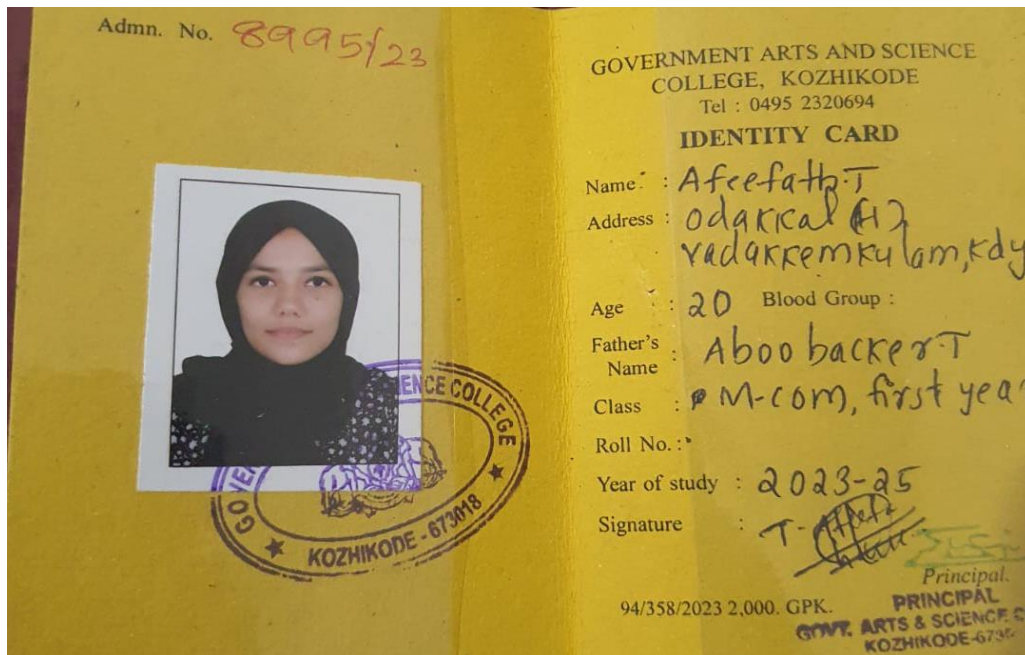 Admn. No. 8995/23
GOVERNMENT ARTS AND SCIENCE
COLLEGE, KOZHIKODE
Tel : 0495 2320694
IDENTITY CARD
Name : Afeefath.T
Address : Odakkal (H)
Vadakkemkulam, kdy
Age : 20 Blood Group :
Father's
Name : Aboobacker.T
Class : M-com, first yea
Roll No. :
Year of study : 2023-25
Signature : T.
Principal.
94/358/2023 2,000. GPK.
PRINCIPAL
GOVT. ARTS & SCIENCE C
KOZHIKODE-673
ENCE COLLEGE
GOVE
KOZHIKODE - 673018